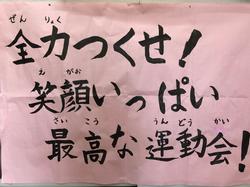 ぜんりょく
全力つくせ!
えがお
笑顔いっぱい
さいこう うんどうかい
最高な運動会!